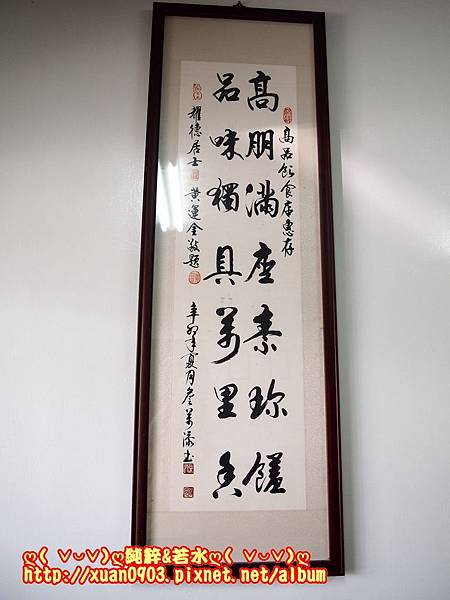 高品飲食店惠存
高朋滿座素珍饈
品味獨具萬里香
耀德居士 黃運金敬題
辛卯年夏月
ღ( ˇ◡ˇ)ღ純粹&若水ღ( ˇ◡ˇ)ღ
http://xuan0903.pixnet.net/album